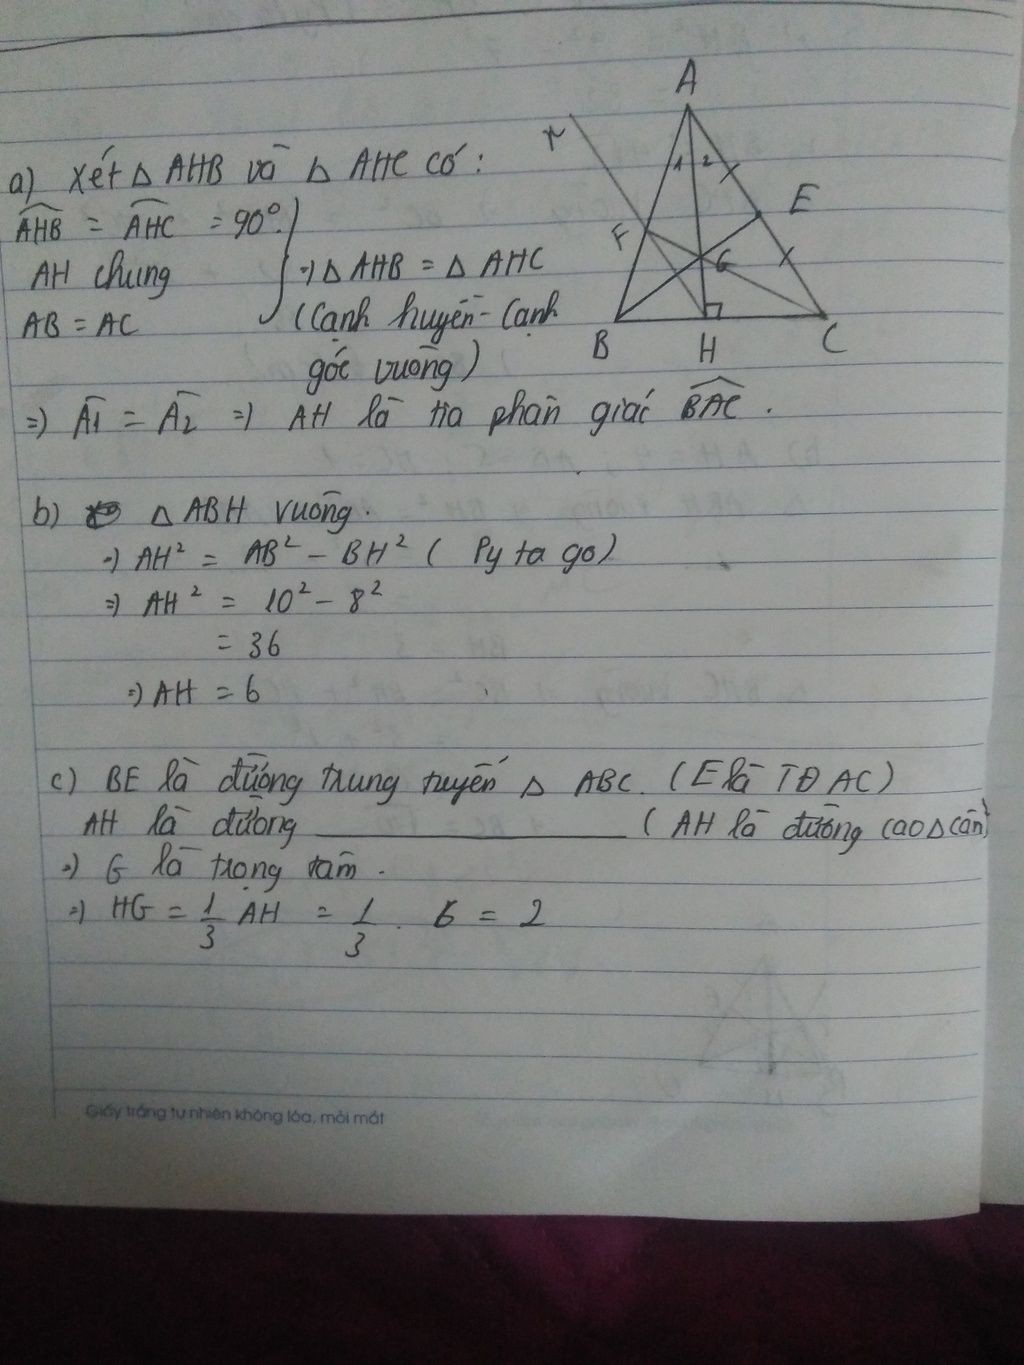 A
x
a) Xét Δ AHB và Δ AHC có:
1 2
E
AHB = AHC = 90°
F
G
AH chung
⇒ Δ AHB = Δ AHC
AB = AC
(Cạnh huyền - Cạnh
góc vuông)
B H C
⇒ A1 = A2 ⇒ AH là tia phân giác BAC.
b) Δ ABH vuông.
⇒ AH² = AB² - BH² (Py ta go)
⇒ AH² = 10² - 8²
= 36
⇒ AH = 6
c) BE là đường trung tuyến Δ ABC. (E là TĐ AC)
AH là đường ________ (AH là đường cao Δ cân)
⇒ G là trọng tâm.
⇒ HG = 1/3 AH = 1/3 . 6 = 2
Giấy trắng tự nhiên không lóa, mỏi mắt